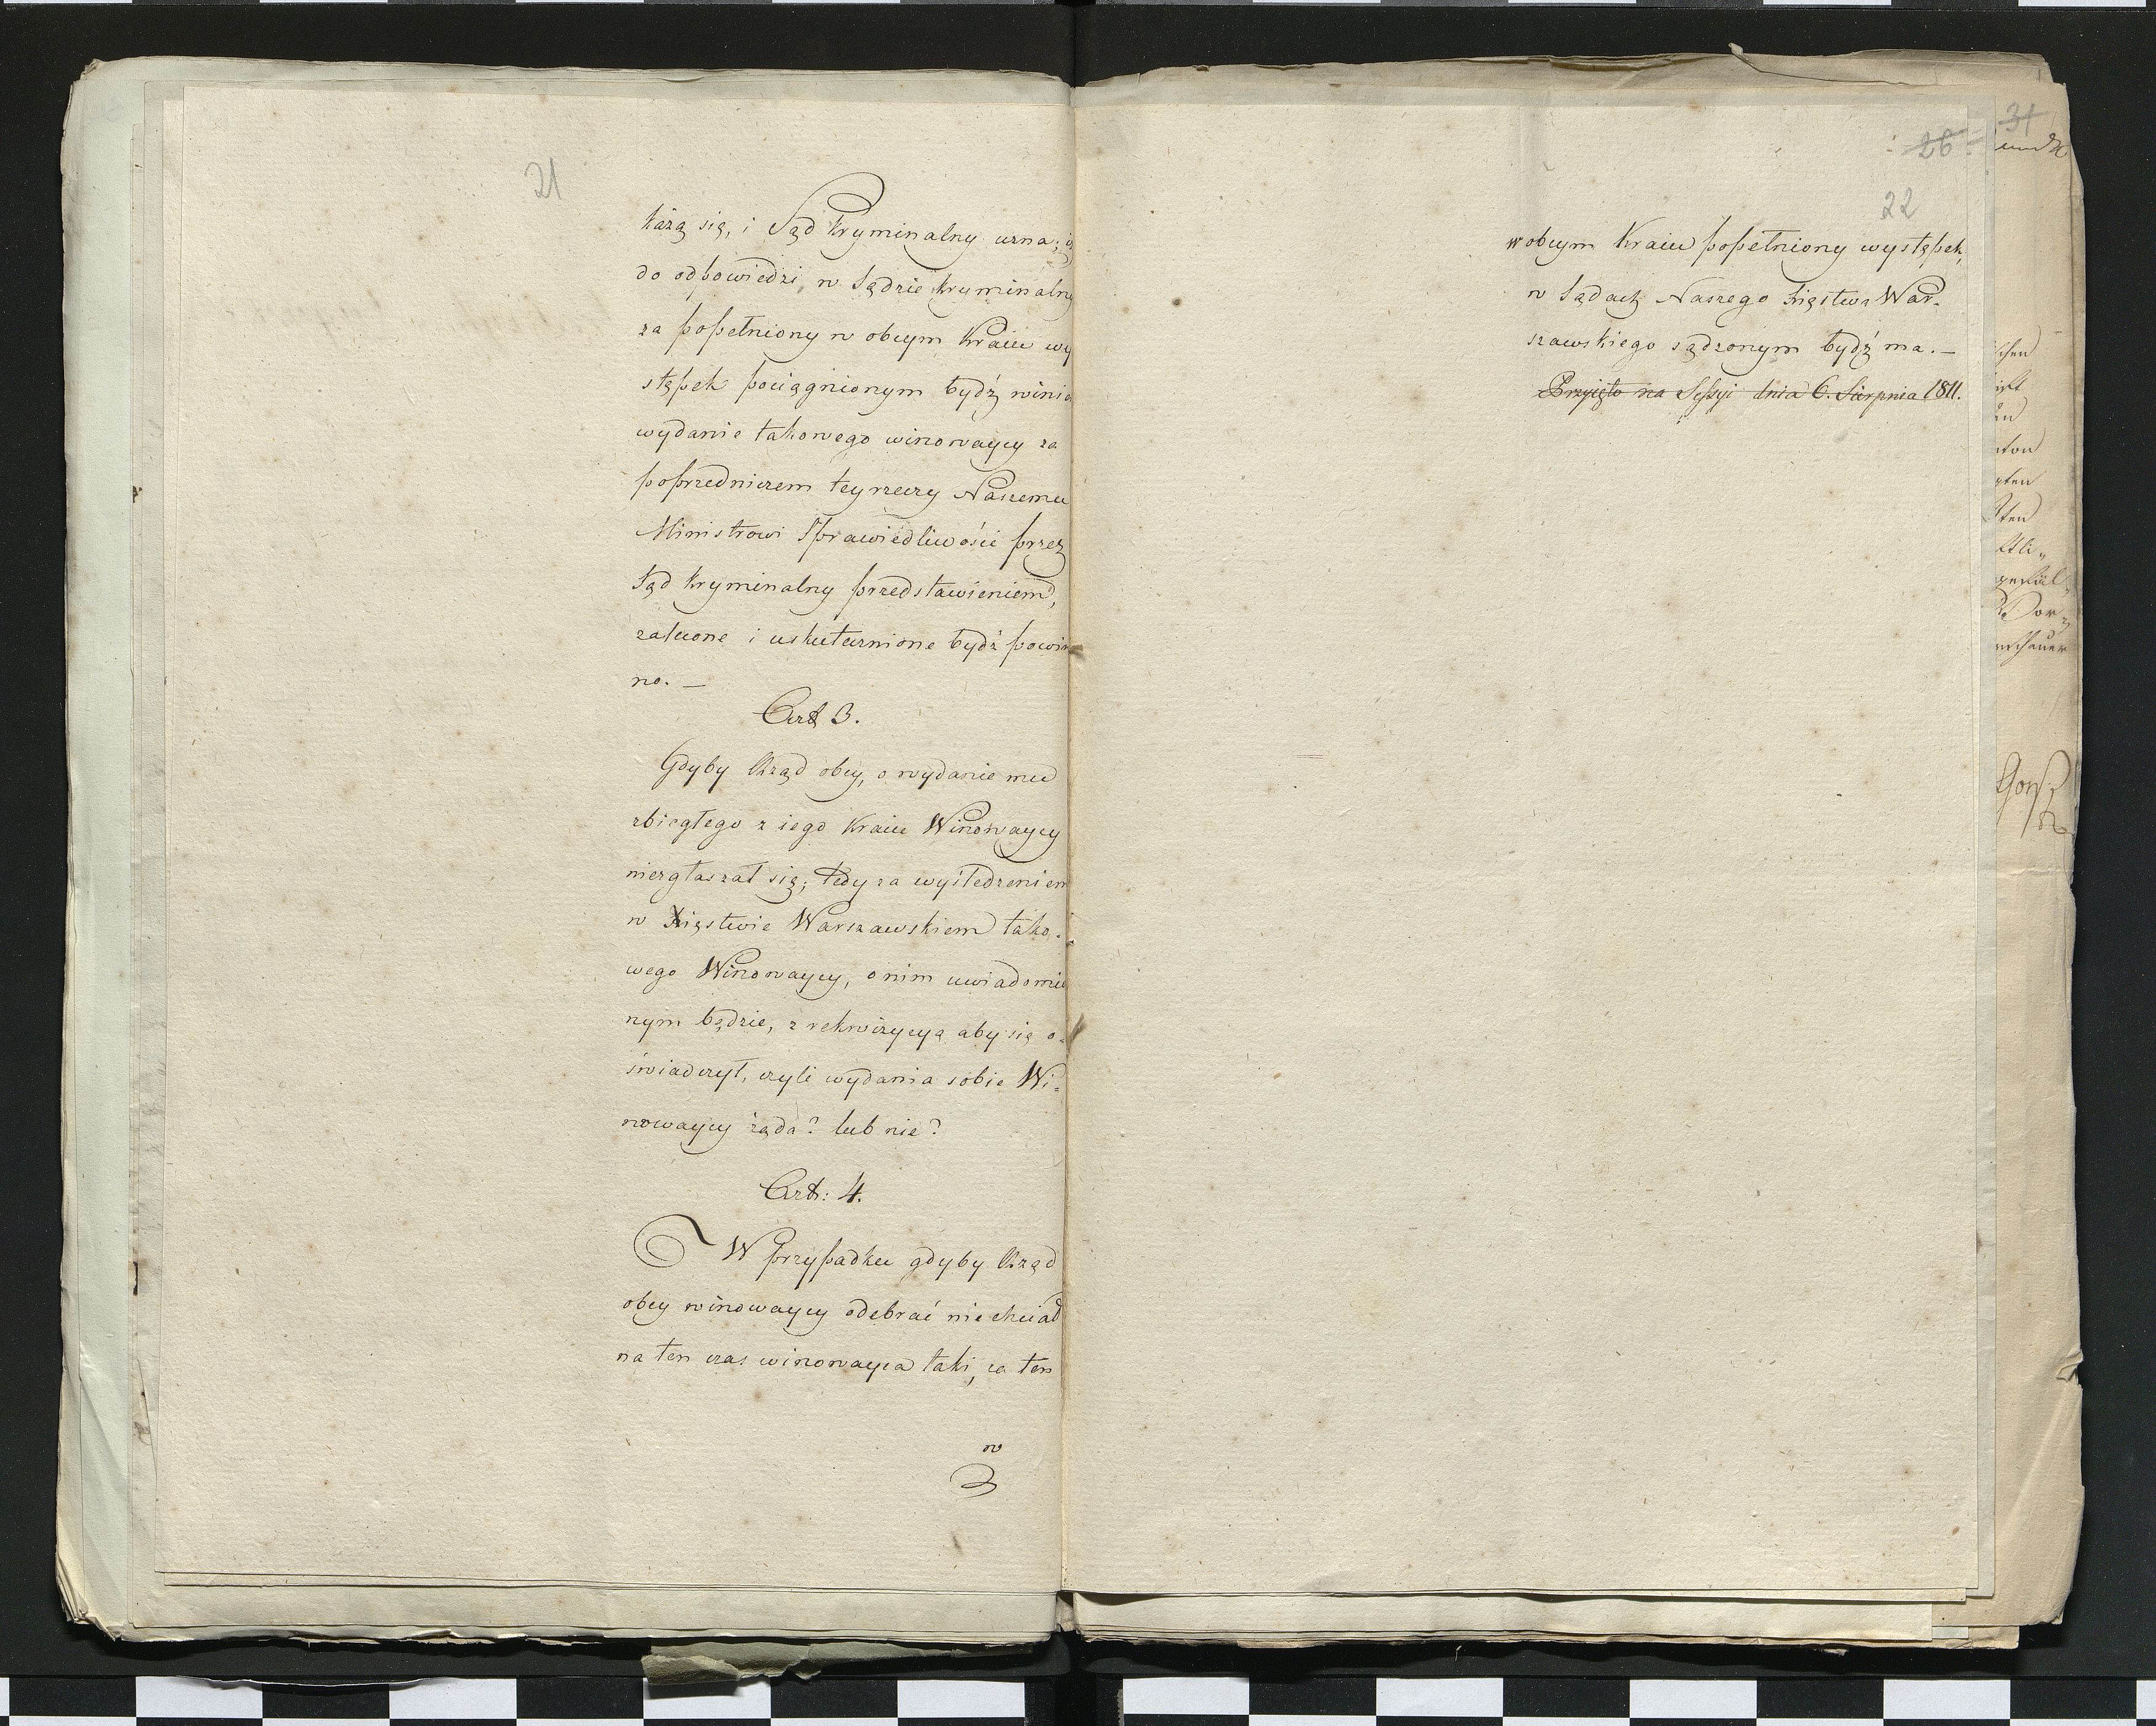 21
każą się, i Sąd Kryminalny uzna; iż
do odpowiedzi, w Sądzie Kryminalny
za popełniony w obcym Kraiu wy
stępek pociągnionym bydź winie
wydanie takowego winowaycy za
poprzedniczem tey rzeczy Naszemu
Ministrowi Sprawiedliwości przez
Sąd Kryminalny przedstawieniem,
zalecone i uskutecznione bydź powin
no. —
Art 3.
Gdyby Rząd obcy, o wydanie mu
zbiegłego z iego Kraiu Winowaycy
niezgłaszał się; tedy za wyśledzeniem
w Xięstwie Warszawskiem tako-
wego Winowaycy, o nim uwiadomio
nym będzie, z rekwizycyą aby się o-
świadczył, czyli wydania sobie Wi=
nowaycy żąda? lub nie?
Art: 4.
W przypadku gdyby Rząd
obcy winowaycy odebrać nie chciał
na ten czas winowayca taki, za ten
w
26
22
w obcym Kraiu popełniony występek,
w Sądach Naszego Xięstwa War-
szawskiego sądzonym bydź ma. —
Przyięto na Sessyi dnia 6. Sierpnia 1811.
31